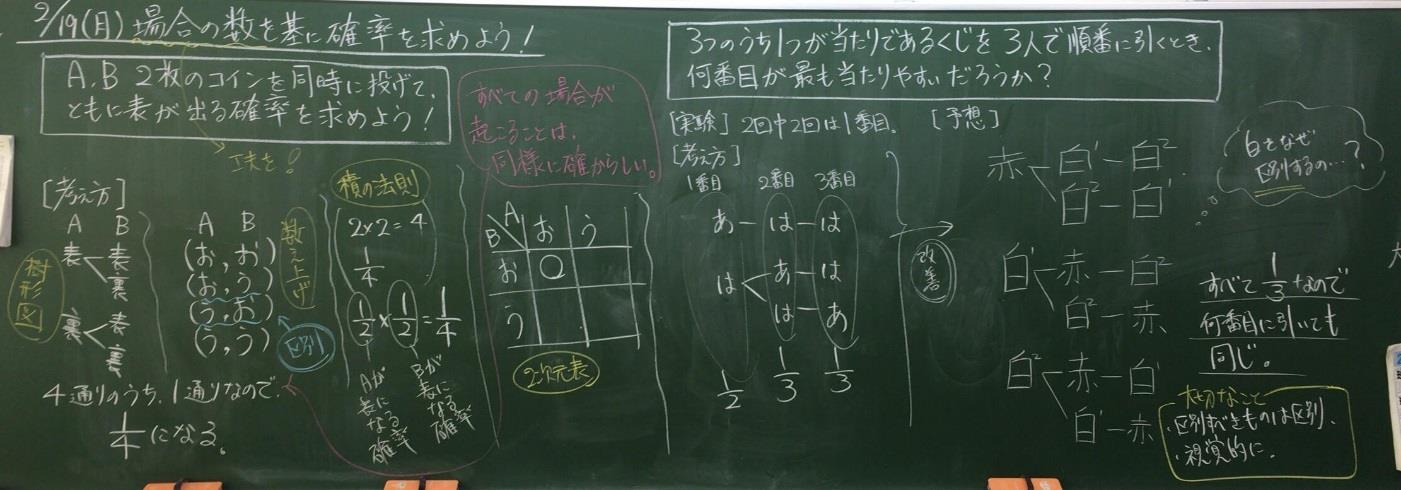 2/19(月) 場合の数を基に確率を求めよう!
A,B 2枚のコインを同時に投げて、
ともに表が出る確率を求めよう!
工夫を!
[考え方]
樹形図
A B
表 表
裏
裏 表
裏
A B
(お,お)
(お,う)
(う,お)
(う,う)
数え上げ
区別
4通りのうち、1通りなので、
1/4になる。
積の法則
2×2=4
1/4
1/2×1/2=1/4
Aが表になる確率
Bが表になる確率
すべての場合が
起こることは、
同様に確からしい。
A
B お う
お ○
う
2次元表
3つのうち1つが当たりであるくじを3人で順番に引くとき、
何番目が最も当たりやすいだろうか?
[実験] 2回中2回は1番目。
[考え方]
1番目 2番目 3番目
あ-は-は
は あ-は
は-あ
1/2 1/3 1/3
改善
[予想]
赤 白¹-白²
白²-白¹
白¹ 赤-白²
白²-赤
白² 赤-白¹
白¹-赤
白をなぜ
区別するの…?
すべて1/3なので
何番目に引いても
同じ。
大切なこと
・区別すべきものは区別、
・視覚的に。